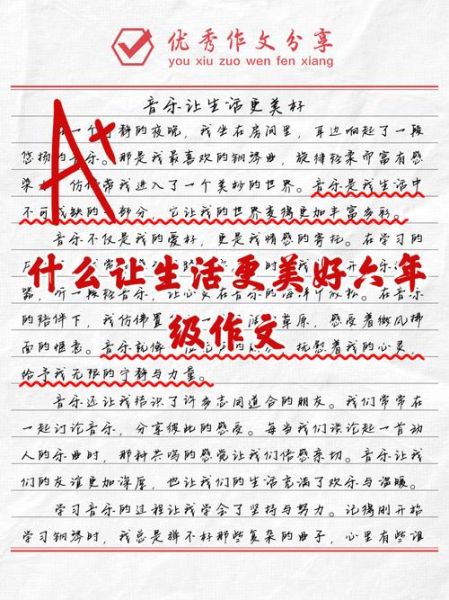 优秀作文分享
you xiu zuo wen fen xiang
音乐让生活更美好
A+
一个宁静的夜晚，我坐在房间里，耳边响起了一段
悠扬的音乐。那是我最喜欢的钢琴曲，旋律轻柔而富有感
染 仿佛带我进入了一个美妙的世界。音乐是我生活中
不可或缺的一部分 它让我的世界变得更加丰富多彩。
音乐不仅是我的爱好，更是我情感的寄托。在学习的
什么让生活更美好六年
级作文
听一段轻音乐，让心灵在音乐的海洋中放松。在音乐
的陪伴下，我仿佛置 草原，感受着微风拂
面的惬意。音乐就像 抚慰着我的心灵，
给予我无限的宁静与力量。
音乐还让我结识了许多志同道合的朋友。我们常常在
一起讨论音乐，分享彼此的感受。每当我们谈论起一首动
人的乐曲时，那种共鸣的感觉让我们倍感亲切。音乐让我
们的友谊更加深厚，也让我们的生活充满了欢乐与温暖。
学习音乐的过程让我学会了坚持与努力。记得刚开始
学习钢琴时，我总是弹不好那些复杂的曲子，心里有些沮